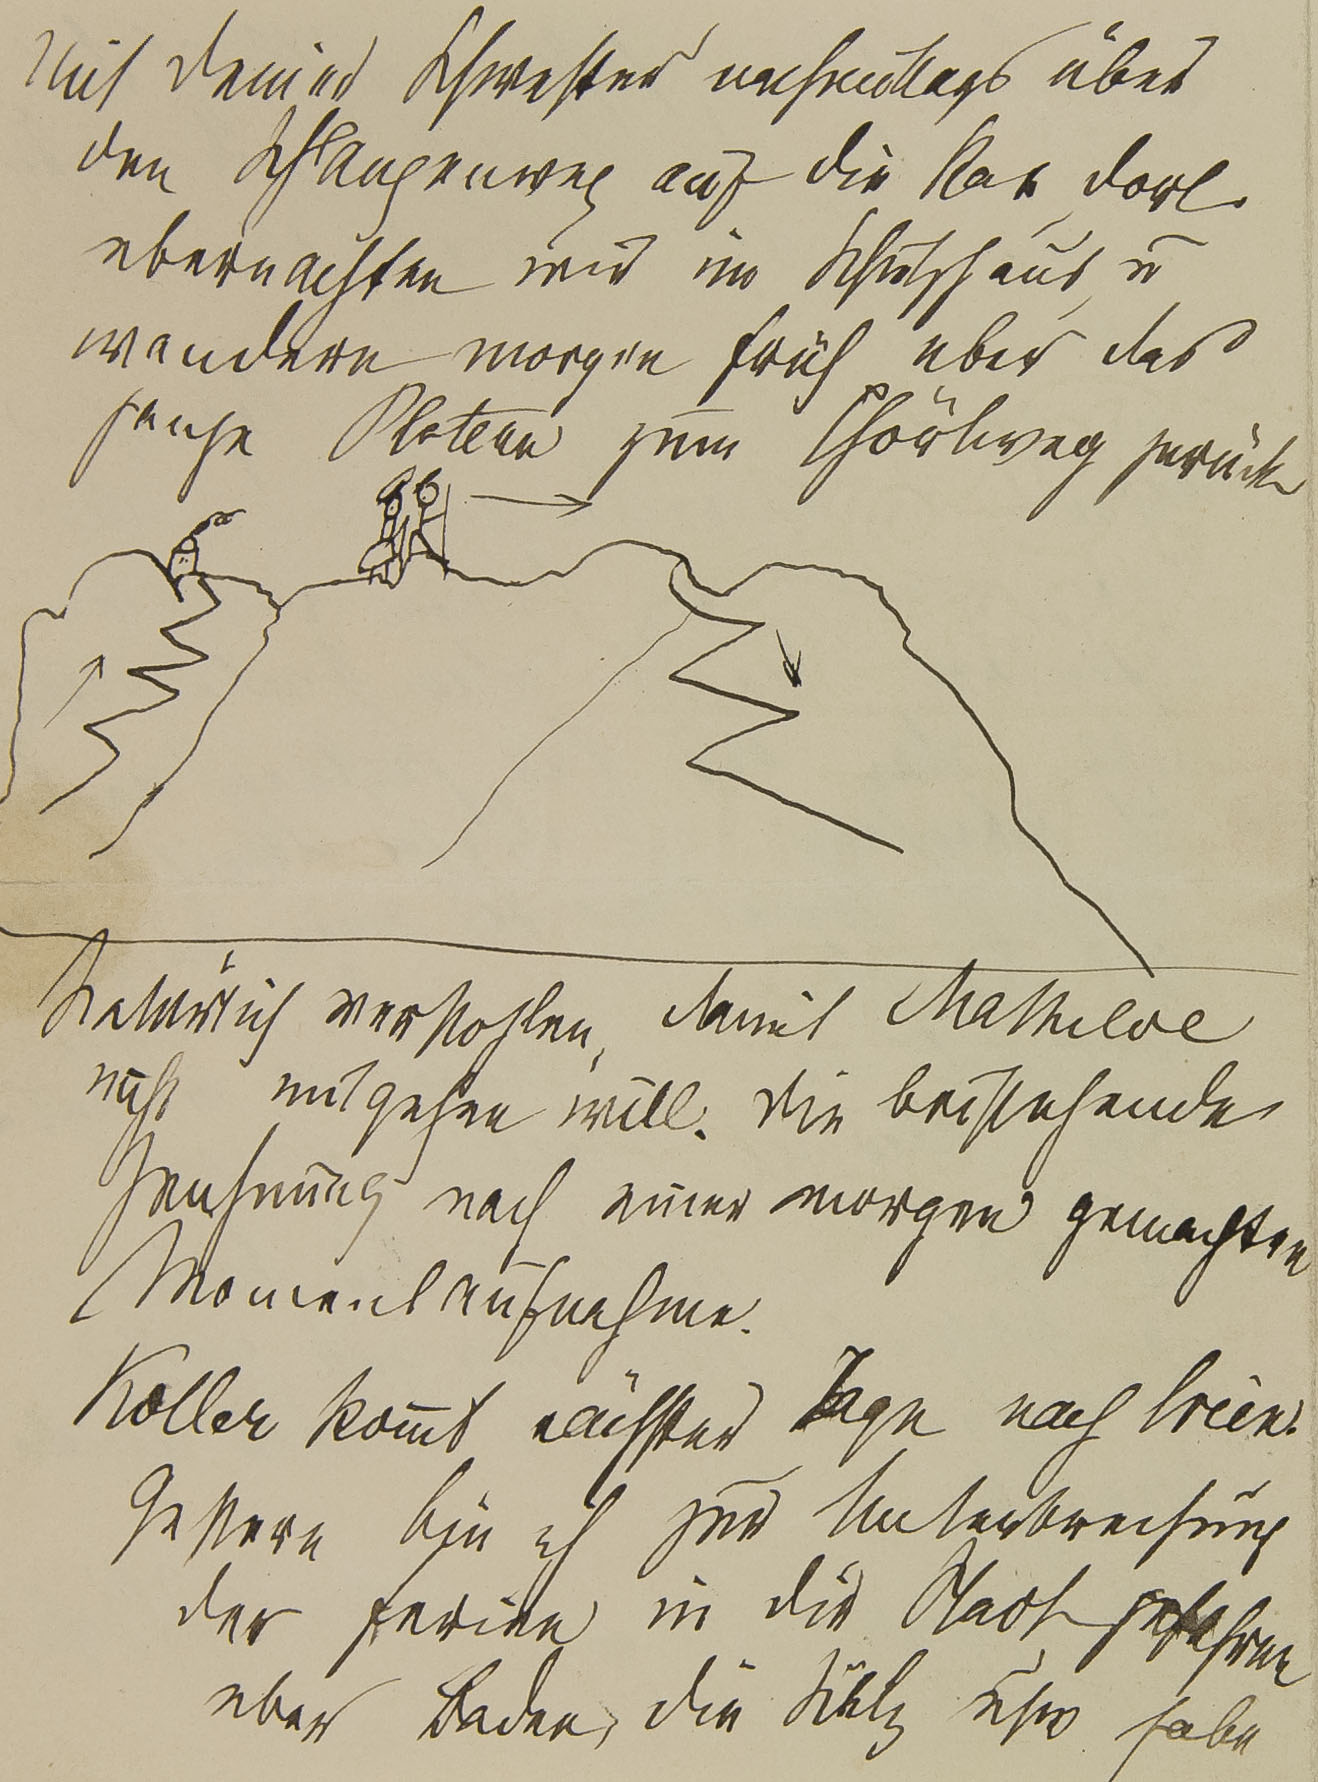 mit deiner Schwester nachmittags über
den Schlangenweg auf die Rax, dort
übernachten wir im Schutzhaus, u
wandern morgen früh über das
ganze Plateau zum Thörlweg zurück
Natürlich verstohlen, damit Mathilde
nicht mitgehen will. Die beistehende
Zeichnung nach einer morgen gemachten
Momentaufnahme.
Koller kom̅t nächster Tage nach Wien.
Gestern bin ich zur Unterbrechung
der Ferien in die Stadt gefahren
über Baden, die usw habe